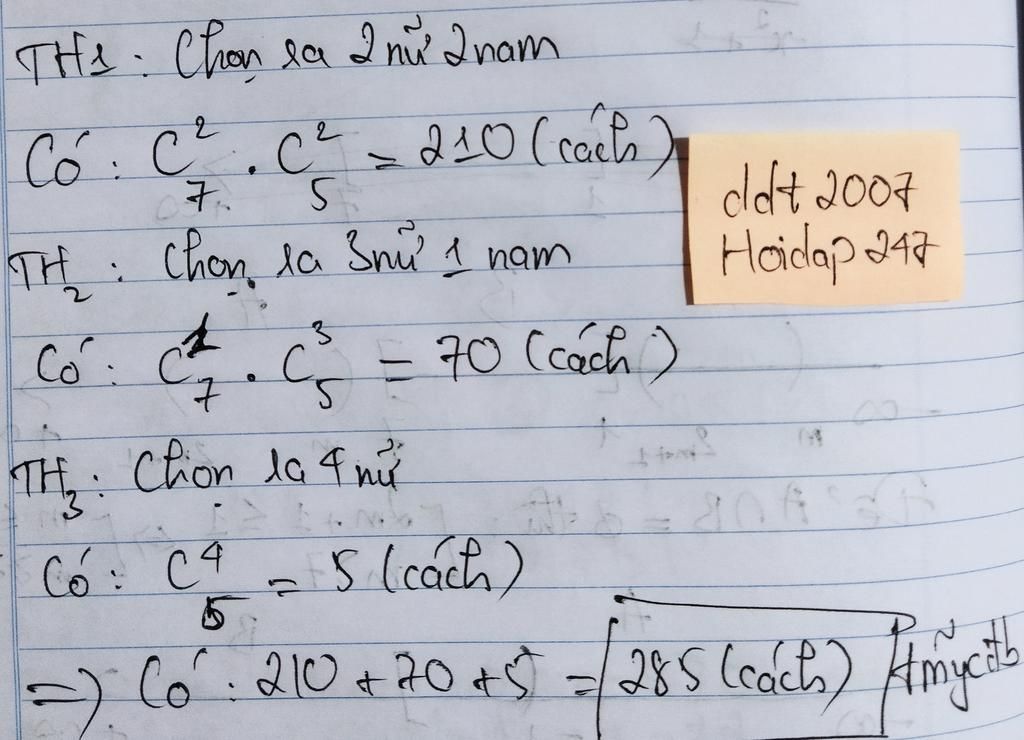 TH1: Chọn ra 2 nữ 2 nam
Có: C₇² . C₅² = 210 (cách)
ddt 2007
Hoidap 247
TH₂: Chọn ra 3 nữ 1 nam
Có: C₇¹ . C₅³ = 70 (cách)
TH₃: Chọn ra 4 nữ
Có: C₅⁴ = 5 (cách)
=> Có: 210 + 70 + 5 = 285 (cách)